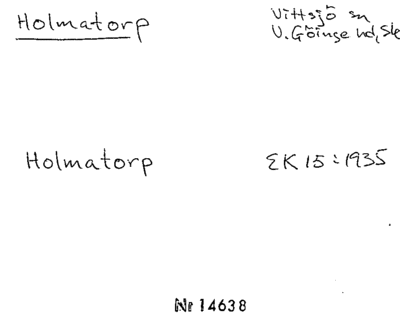 Holmatorp
Vittsjö sn
V. Göinge hd, Sk
Holmatorp
EK 15:1935
Nr 14638